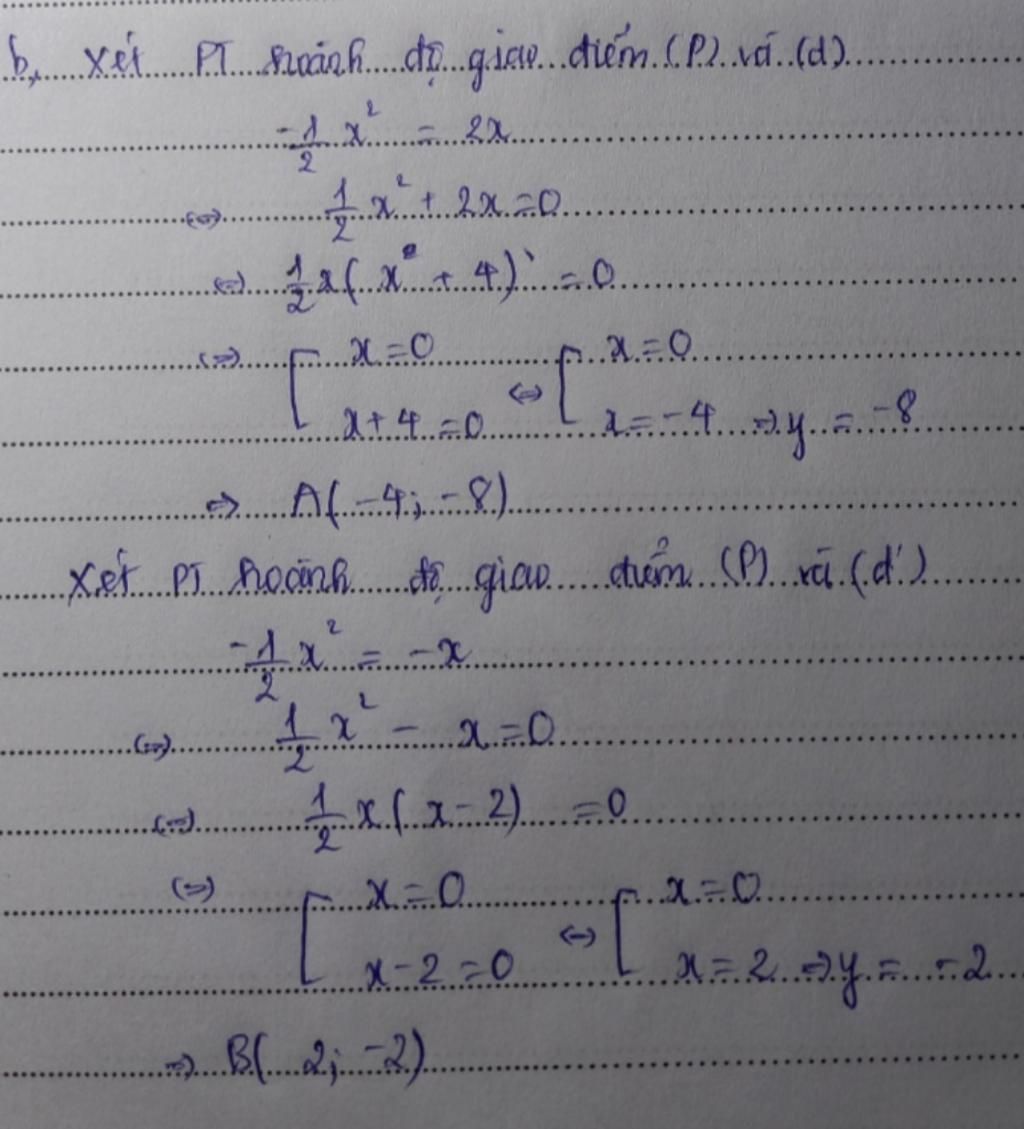 b, Xét PT hoành độ giao điểm (P) và (d)
-1/2 x² = 2x
<=> 1/2 x² + 2x = 0
<=> 1/2 x( x + 4) = 0
<=> [ x = 0 <=> [ x = 0
x + 4 = 0 x = -4 => y = -8
=> A( -4; -8)
Xét PT hoành độ giao điểm (P) và (d')
-1/2 x² = -x
<=> 1/2 x² - x = 0
<=> 1/2 x( x - 2) = 0
<=> [ x = 0 <=> [ x = 0
x - 2 = 0 x = 2 => y = -2
=> B( 2; -2)